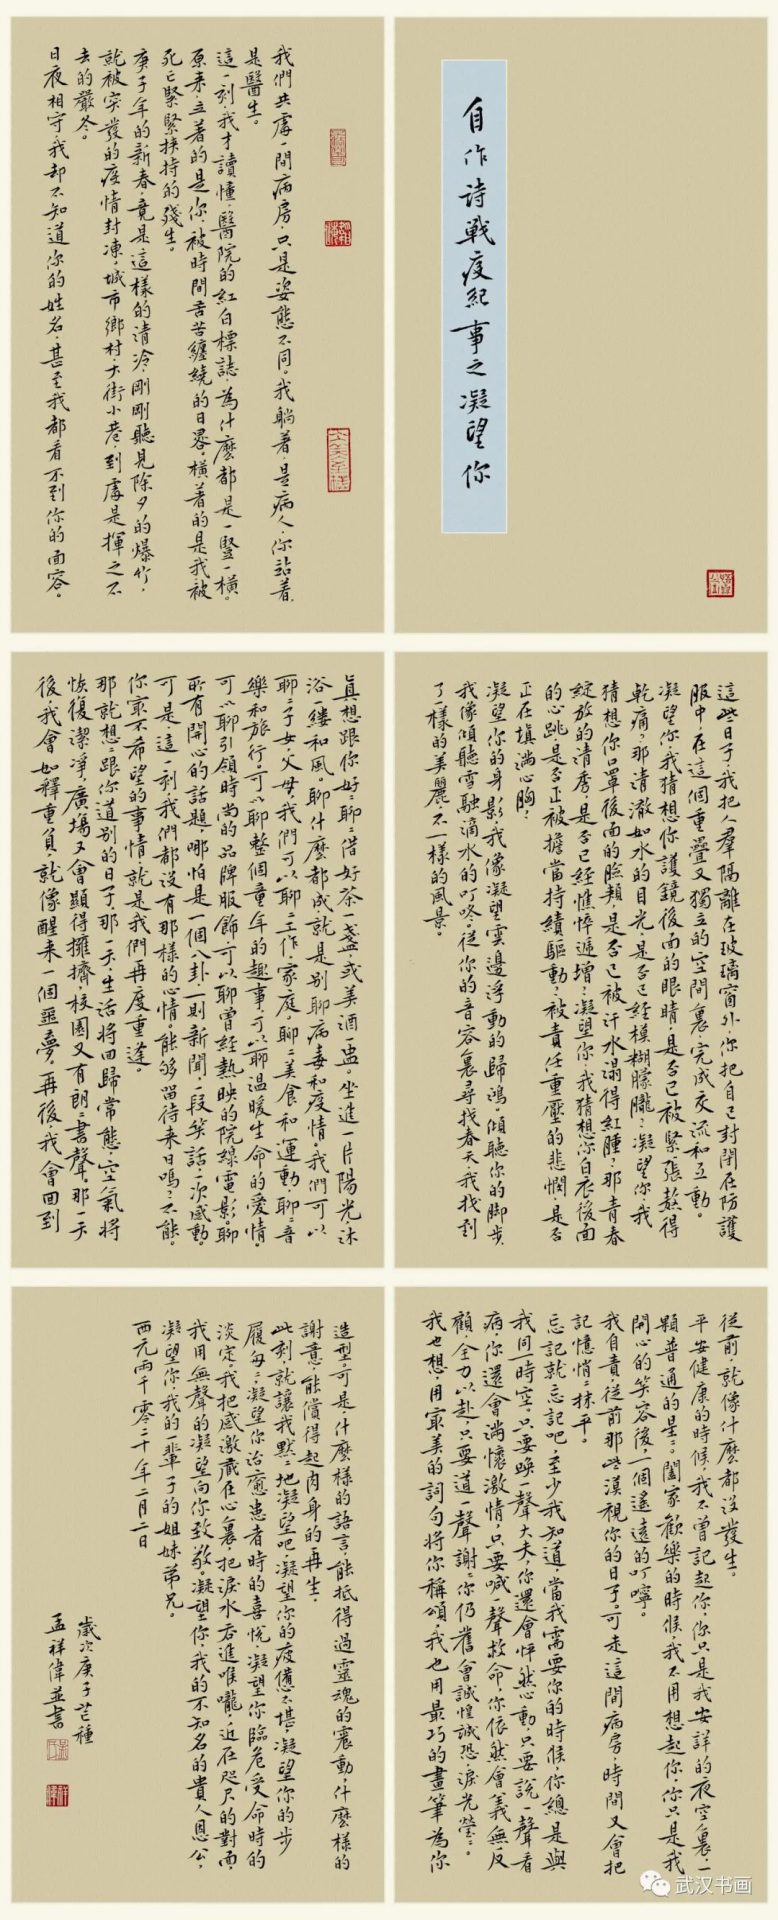 自作诗戰疫紀事之凝望你
我們共處一間病房,只是姿態不同。我躺著,是病人,你站着,
是醫生。
這一刻,我才讀懂,醫院的紅白標誌,為什麼都是一豎一橫。
原来,立著的是你,被時間苦苦纏繞的日晷。橫著的是我,被
死亡緊緊挾持的殘生。
庚子年的新春,竟是這樣的清冷,剛剛聽見除夕的爆竹,
就被突發的疫情封凍。城市鄉村,大街小巷,到處是揮之不
去的嚴冬。
日夜相守,我却不知道你的姓名,甚至我都看不到你的面容。
這些日子,我把人羣隔離在玻璃窗外,你把自己封閉在防護
服中,在這個重疊又獨立的空間裏,完成交流和互動。
凝望你,我猜想你護鏡後面的眼睛,是否已被緊張熬得
乾痛,那清澈如水的目光,是否已經模糊朦朧;凝望你,我
猜想你口罩後面的臉頰,是否已被汗水溻得紅腫,那青春
綻放的清秀,是否已經憔悴遞增;凝望你,我猜想你白衣後面
的心跳,是否正被擔當持續驅動,被責任重壓的悲憫,是否
正在填滿心胸;
凝望你的身影,我像凝望雲邊浮動的歸鴻,傾聽你的脚步,
我像傾聽雪融滴水的叮咚。從你的音容裏尋找春天,我找到
了一樣的美麗,不一樣的風景。
真想跟你好好聊聊,借好茶一盞,或美酒一盅,坐進一片陽光,沐
浴一縷和風,聊什麼都成,就是别聊病毒和疫情。我們可以
聊聊子女,父母,我們可以聊聊工作,家庭,聊聊美食和運動,聊聊音
樂和旅行,可以聊整個童年的趣事,可以聊温暖生命的愛情。
可以聊引領時尚的品牌服飾,可以聊曾經熱映的院線電影。聊
所有開心的話題,哪怕是一個八卦,一則新聞,一段笑話,一次感動。
可是,這一刻我們都没有那樣的心情。能够留待来日嗎?不能。
你最不希望的事情,就是我們再度重逢。
那就想想跟你道别的日子,那一天,生活將回歸常態,空氣將
恢復潔净,廣場又會顯得擁擠,校園又有朗朗書聲。那一天
後,我會如釋重負,就像醒来一個噩夢。再後,我會回到
從前,就像什麼都没發生。
平安健康的時候,我不曾記起你,你只是我安詳的夜空裏,一
顆普通的星星。闔家歡樂的時候,我不用想起你,你只是我
開心的笑容後,一個遙遠的叮嚀。
我自責從前那些漠視你的日子。可走這間病房,時間又會把
記憶悄悄抹平。
忘記就忘記吧,至少我知道,當我需要你的時候,你總是與
我同一時空。只要喚一聲大夫,你還會怦然心動,只要說一聲看
病,你還會滿懷激情,只要喊一聲救命,你依然會義無反
顧,全力以赴,只要道一聲謝謝,你仍舊會誠惶誠恐,淚光瑩瑩。
我也想,用最美的詞句將你稱頌,我也用最巧的畫筆為你
造型,可是,什麼樣的語言,能抵得過靈魂的震動,什麼樣的
謝意,能償得起肉身的再生。
此刻,就讓我默默地凝望吧,凝望你的疲憊不堪,凝望你的步
履匆匆,凝望你治癒患者時的喜悦,凝望你臨危受命時的
淡定。我把感激藏在心裏,把淚水吞進喉嚨,近在咫尺的對面,
我用無聲的凝望向你致敬。凝望你,我的不知名的貴人恩公,
凝望你,我的一輩子的姐妹弟兄。
西元兩千零二十年二月二日
歲次庚子芒種
孟祥偉並書
武汉书画